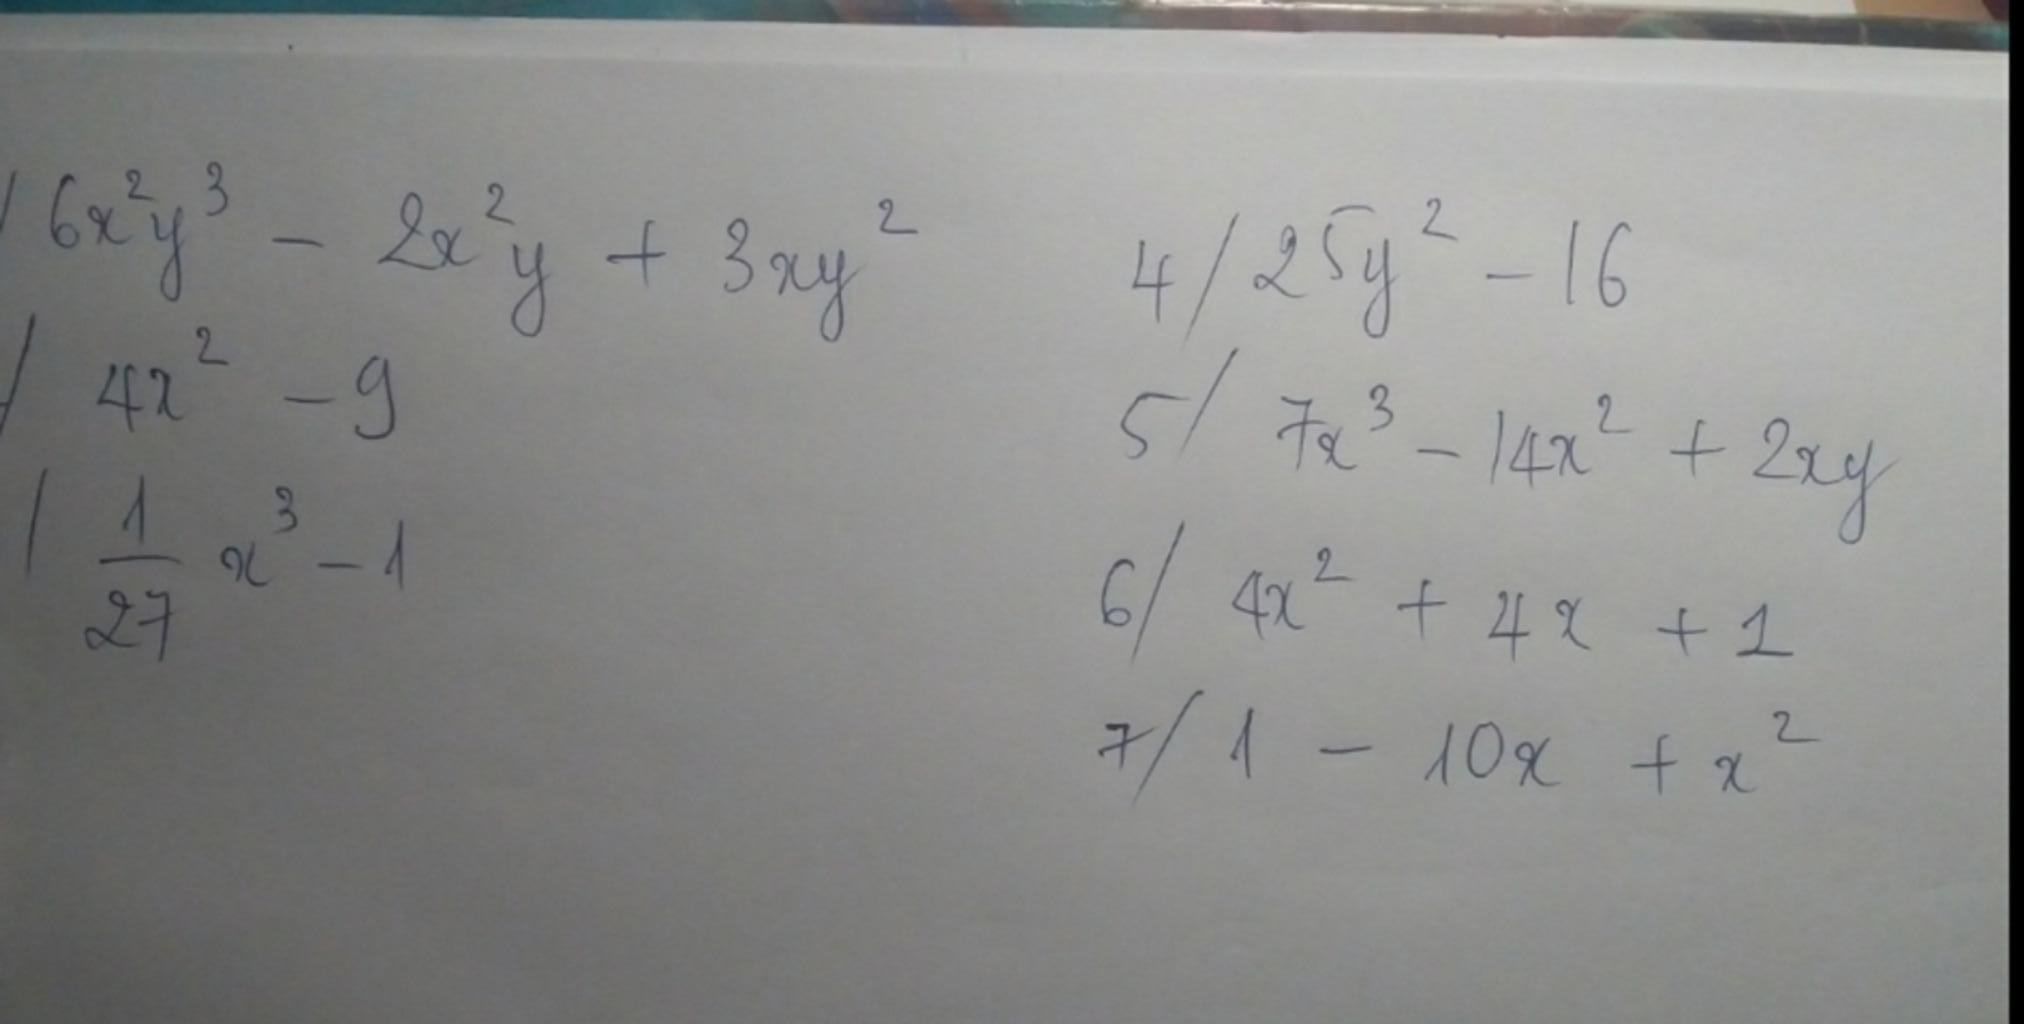 / 6x²y³ - 2x²y + 3xy²
/ 4x² - 9
/ 1/27 x³ - 1
4/ 25y² - 16
5/ 7x³ - 14x² + 2xy
6/ 4x² + 4x + 1
7/ 1 - 10x + x²